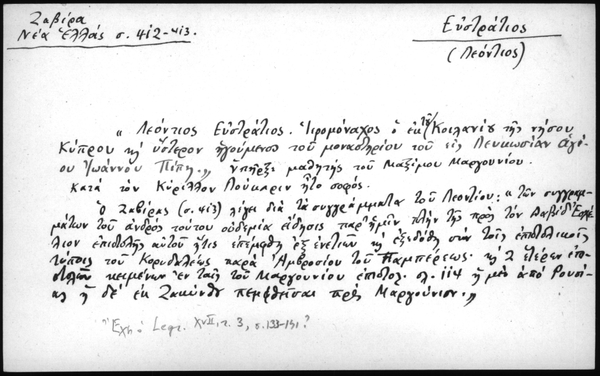 Ζαβίρα
Νέα Ἑλλάς σ. 412-413.
Εὐστράτιος
(Λεόντιος)
" Λεόντιος Εὐστράτιος. Ἱερομόναχος ὁ ἐκ τῆς Κοιλανίου τῆς νήσου
Κύπρου κ̀ ὕστερον ἡγούμενος τοῦ μοναστηρίου τοῦ εἰς Λευκωσίαν ἁγί-
ου Ἰωάννου Πίπη.,, ὑπῆρξε μαθητὴς τοῦ Μαξίμου Μαργουνίου.
κατά τὸν Κύριλλον Λούκαριν ἦτο σοφός.
Ὁ Ζαβίρας (σ. 413) λέγει διὰ τὰ συγγράμματα τοῦ Λεοντίου: "τῶν συγγραμ-
μάτων τοῦ ἀνδρὸς τούτου οὐδεμία εἴδησις παρ' ἡμῖν πλὴν τῆς πρὸς τὸν Δαβὶδ Ἐσχέ-
λιον ἐπιστολῆς αὐτοῦ ἥτις ἐπέμφθη ἐξ Ἐνετιῶν κ̀ ἐξεδόθη σὺν τοῖς ἐπιστολικοῖς
τύποις τοῦ Κορυδαλέως παρὰ Ἀμβροσίου τοῦ Παμπέρεως. κ̀ 2 ἑτέρων ἐπι-
στολῶν κειμένων ἐν ταῖς τοῦ Μαργουνίου ἐπιστολ. σλ. 114 ἡ μὲν ἀπό
ἡ δὲ ἐκ Ζακύνθου πεμφθεῖσαι πρὸς Μαργούνιον.,,
Ἔχει ὁ Legr. XVII, τ. 3, σ. 133-141?